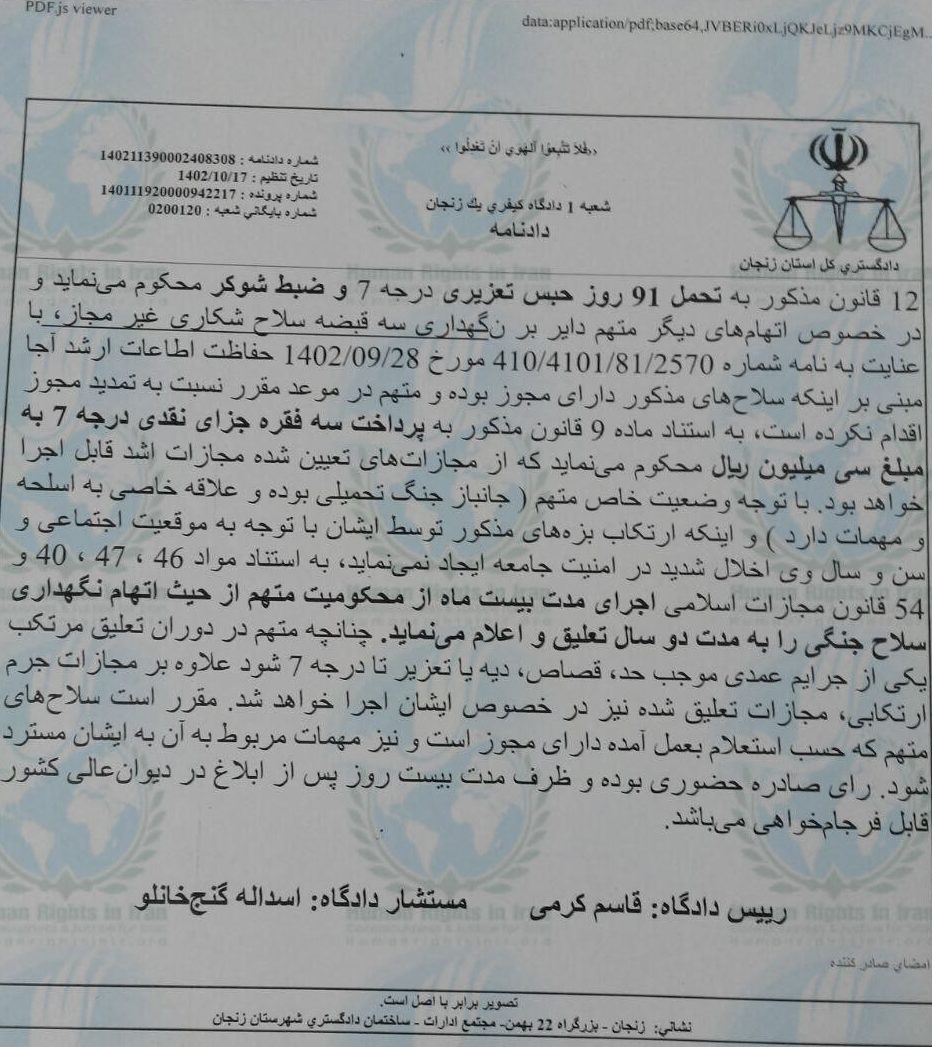 PDF.js viewer
data:application/pdf;base64,JVBERi0xLjQKJeLjz9MKCjEgM...
‹‹فَلا تَتَّبِعوُا الْهَوي اَنْ تَعْدِلُوا ››
شماره دادنامه : 140211390002408308
تاریخ تنظیم : 1402/10/17
شماره پرونده : 140111920000942217
شماره بایگاني شعبه : 0200120
شعبه 1 دادگاه کیفري یك زنجان
دادنامه
دادگستري کل استان زنجان
12 قانون مذکور به تحمل 91 روز حبس تعزیری درجه 7 و ضبط شوکر محکوم می‌نماید و
در خصوص اتهام‌های دیگر متهم دایر بر نگهداری سه قبضه سلاح شکاری غیر مجاز، با
عنایت به نامه شماره 410/4101/81/2570 مورخ 1402/09/28 حفاظت اطاعات ارشد آجا
مبنی بر اینکه سلاح‌های مذکور دارای مجوز بوده و متهم در موعد مقرر نسبت به تمدید مجوز
اقدام نکرده است، به استناد ماده 9 قانون مذکور به پرداخت سه فقره جزای نقدی درجه 7 به
مبلغ سی میلیون ریال محکوم می‌نماید که از مجازات‌های تعیین شده مجازات اشد قابل اجرا
خواهد بود. با توجه وضعیت خاص متهم ( جانباز جنگ تحمیلی بوده و علاقه خاصی به اسلحه
و مهمات دارد ) و اینکه ارتکاب بزه‌های مذکور توسط ایشان با توجه به موقعیت اجتماعی و
سن و سال وی اخلال شدید در امنیت جامعه ایجاد نمی‌نماید، به استناد مواد 46 ، 47 ، 40 و
54 قانون مجازات اسلامی اجرای مدت بیست ماه از محکومیت متهم از حیث اتهام نگهداری
سلاح جنگی را به مدت دو سال تعلیق و اعلام می‌نماید. چنانچه متهم در دوران تعلیق مرتکب
یکی از جرایم عمدی موجب حد، قصاص، دیه یا تعزیر تا درجه 7 شود علاوه بر مجازات جرم
ارتکابی، مجازات تعلیق شده نیز در خصوص ایشان اجرا خواهد شد. مقرر است سلاح‌های
متهم که حسب استعلام بعمل آمده دارای مجوز است و نیز مهمات مربوط به آن به ایشان مسترد
شود. رای صادره حضوری بوده و ظرف مدت بیست روز پس از ابلاغ در دیوان‌عالی کشور
قابل فرجام‌خواهی می‌باشد.
رییس دادگاه: قاسم کرمی مستشار دادگاه: اسداله گنج‌خانلو
امضاي صادر کننده
تصویر برابر با اصل است.
نشاني: زنجان - بزرگراه 22 بهمن- مجتمع ادارات - ساختمان دادگستري شهرستان زنجان
Human Rights in Iran